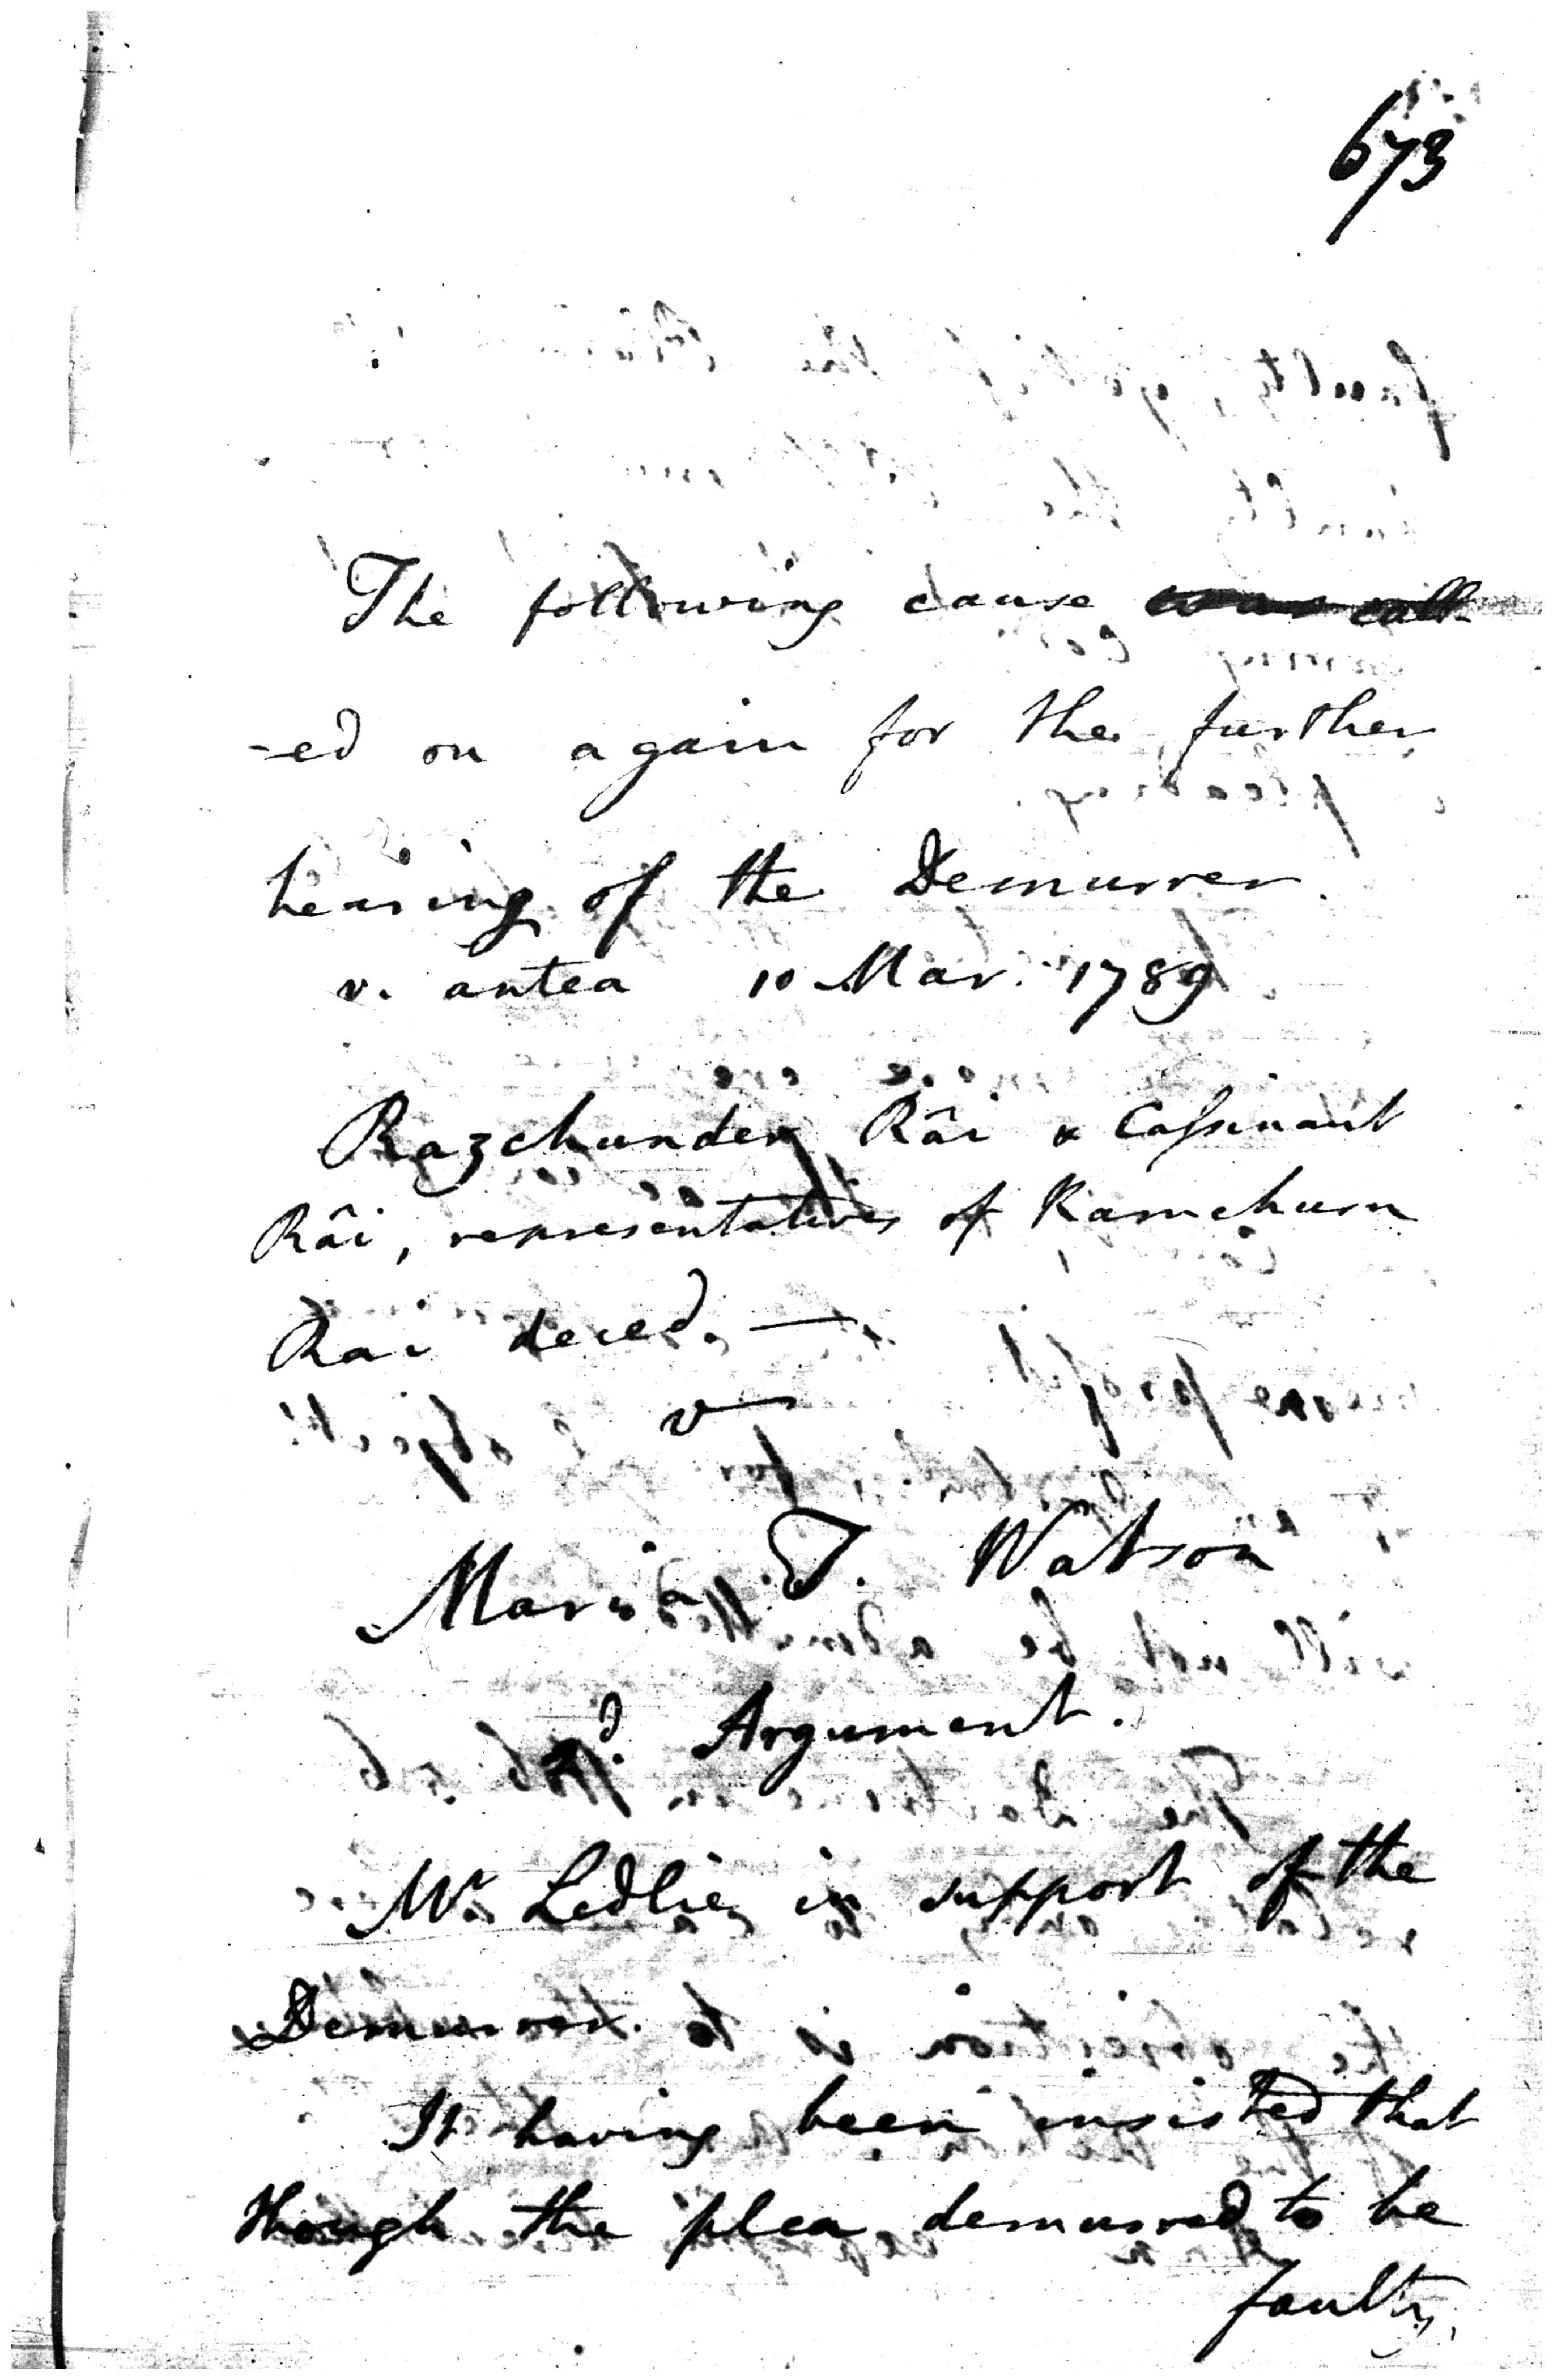 673
The following cause was call-
-ed on again for the further
hearing of the Demurrer.
v. antea 10 Mar. 1789
Razchunder Râi & Cassinaut
Râi, representatives of Ramchurn
Rai deced. —
v
Maria T. Watson
2d. Argument.
Mr Ledlie, in support of the
Demurrer.
It having been insisted that
though the plea demurred to be
faulty,